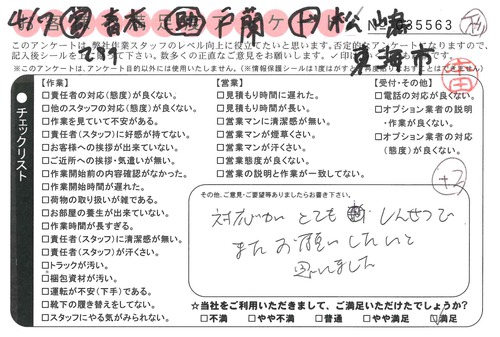 4/7 責 高橋 助 戸蘭 ド 松山
東海市
このアンケートは、弊社作業スタッフのレベル向上に役立てたいと思います。
チェックリスト
【作業】
□責任者の対応(態度)が良くない。
□他のスタッフの対応(態度)が良くない。
□作業を見ていて不安がある。
□責任者(スタッフ)に好感が持てない。
□お客様への挨拶が出来ていない。
□ご近所への挨拶・気遣いが無い。
□作業開始前の内容確認がなかった。
□作業開始時間が遅れた。
□荷物の取り扱いが雑である。
□お部屋の養生が出来ていない。
□作業時間が長すぎる。
□責任者(スタッフ)に清潔感が無い。
□責任者(スタッフ)が汗くさい。
□トラックが汚い。
□梱包資材が汚い。
□運転が不安(下手)である。
□靴下の履き替えをしてない。
□スタッフにやる気がみられない。
【営業】
□見積もり時間に遅れた。
□見積もり時間が長い。
□営業マンに清潔感が無い。
□営業マンが煙草くさい。
□営業マンが汗くさい。
□営業態度が良くない。
□営業の説明と作業が一致してない。
【受付・その他】
□電話の対応が良くない。
□オプション業者の説明
・作業が良くない。
□オプション業者の対応
(態度)が良くない。
その他、ご意見・ご要望等ありましたらお書き下さい。
対応がとても しんせつで
またお願いしたいと
思いました
☆当社をご利用いただきまして、ご満足いただけたでしょうか?
□不満 □やや不満 □普通 □やや満足 ☑満足